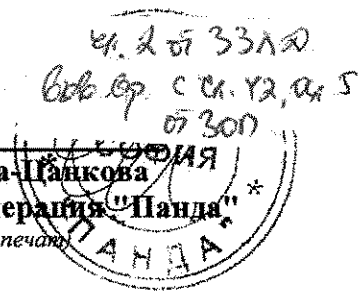 чл. 2 от ЗЗЛД
във вр. с чл. 42, ал. 5
от ЗОП
СОФИЯ
а-Цанкова
перация "Панда"
печат)
"ПАНДА"